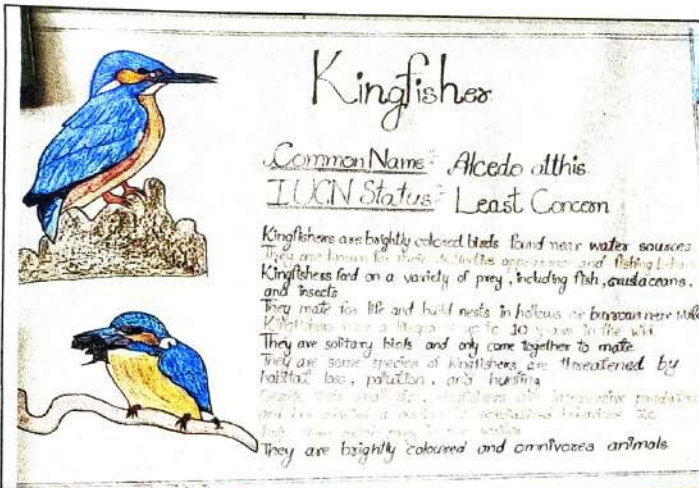 Kingfisher
Common Name:- Alcedo atthis
IUCN Status:- Least Concern
Kingfishers are brightly colored birds found near water sources
They are known for their distinctive appearance and fishing
Kingfishers feed on a variety of prey, including fish, crustaceans,
and insects
They mate for life and build nests in hollows or burrows near
Kingfishers have a lifespan of up to 10 years in the wild
They are solitary birds and only come together to mate
They are some species of kingfishers are threatened by
habitat loss, pollution, and hunting
their small kingfishers are predators
and
They are brightly coloured and omnivores animals